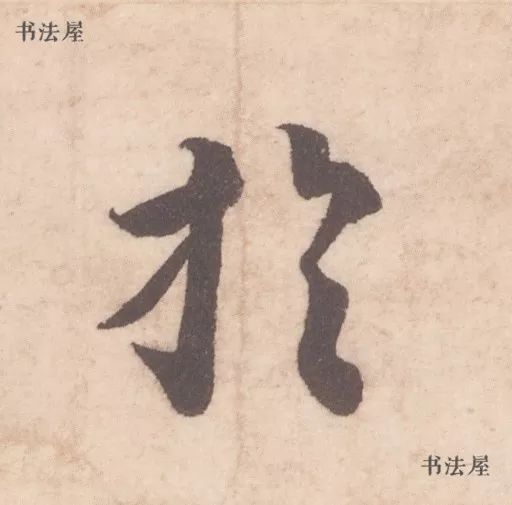 书法屋
於
书法屋